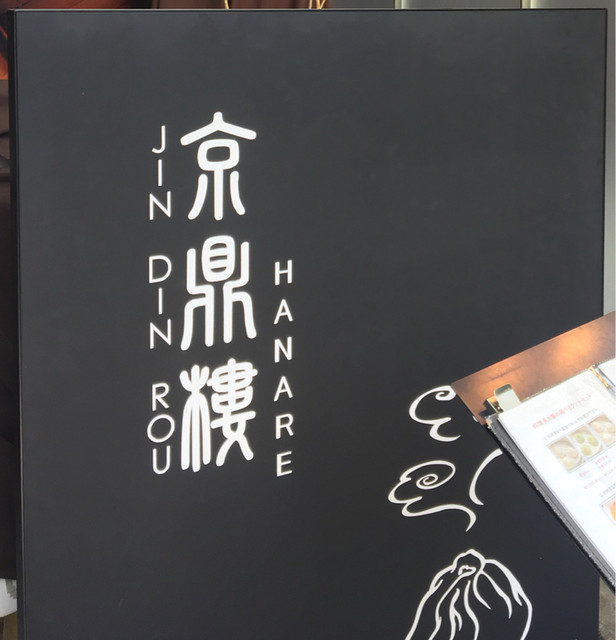 JIN DIN ROU
京鼎樓
HANARE